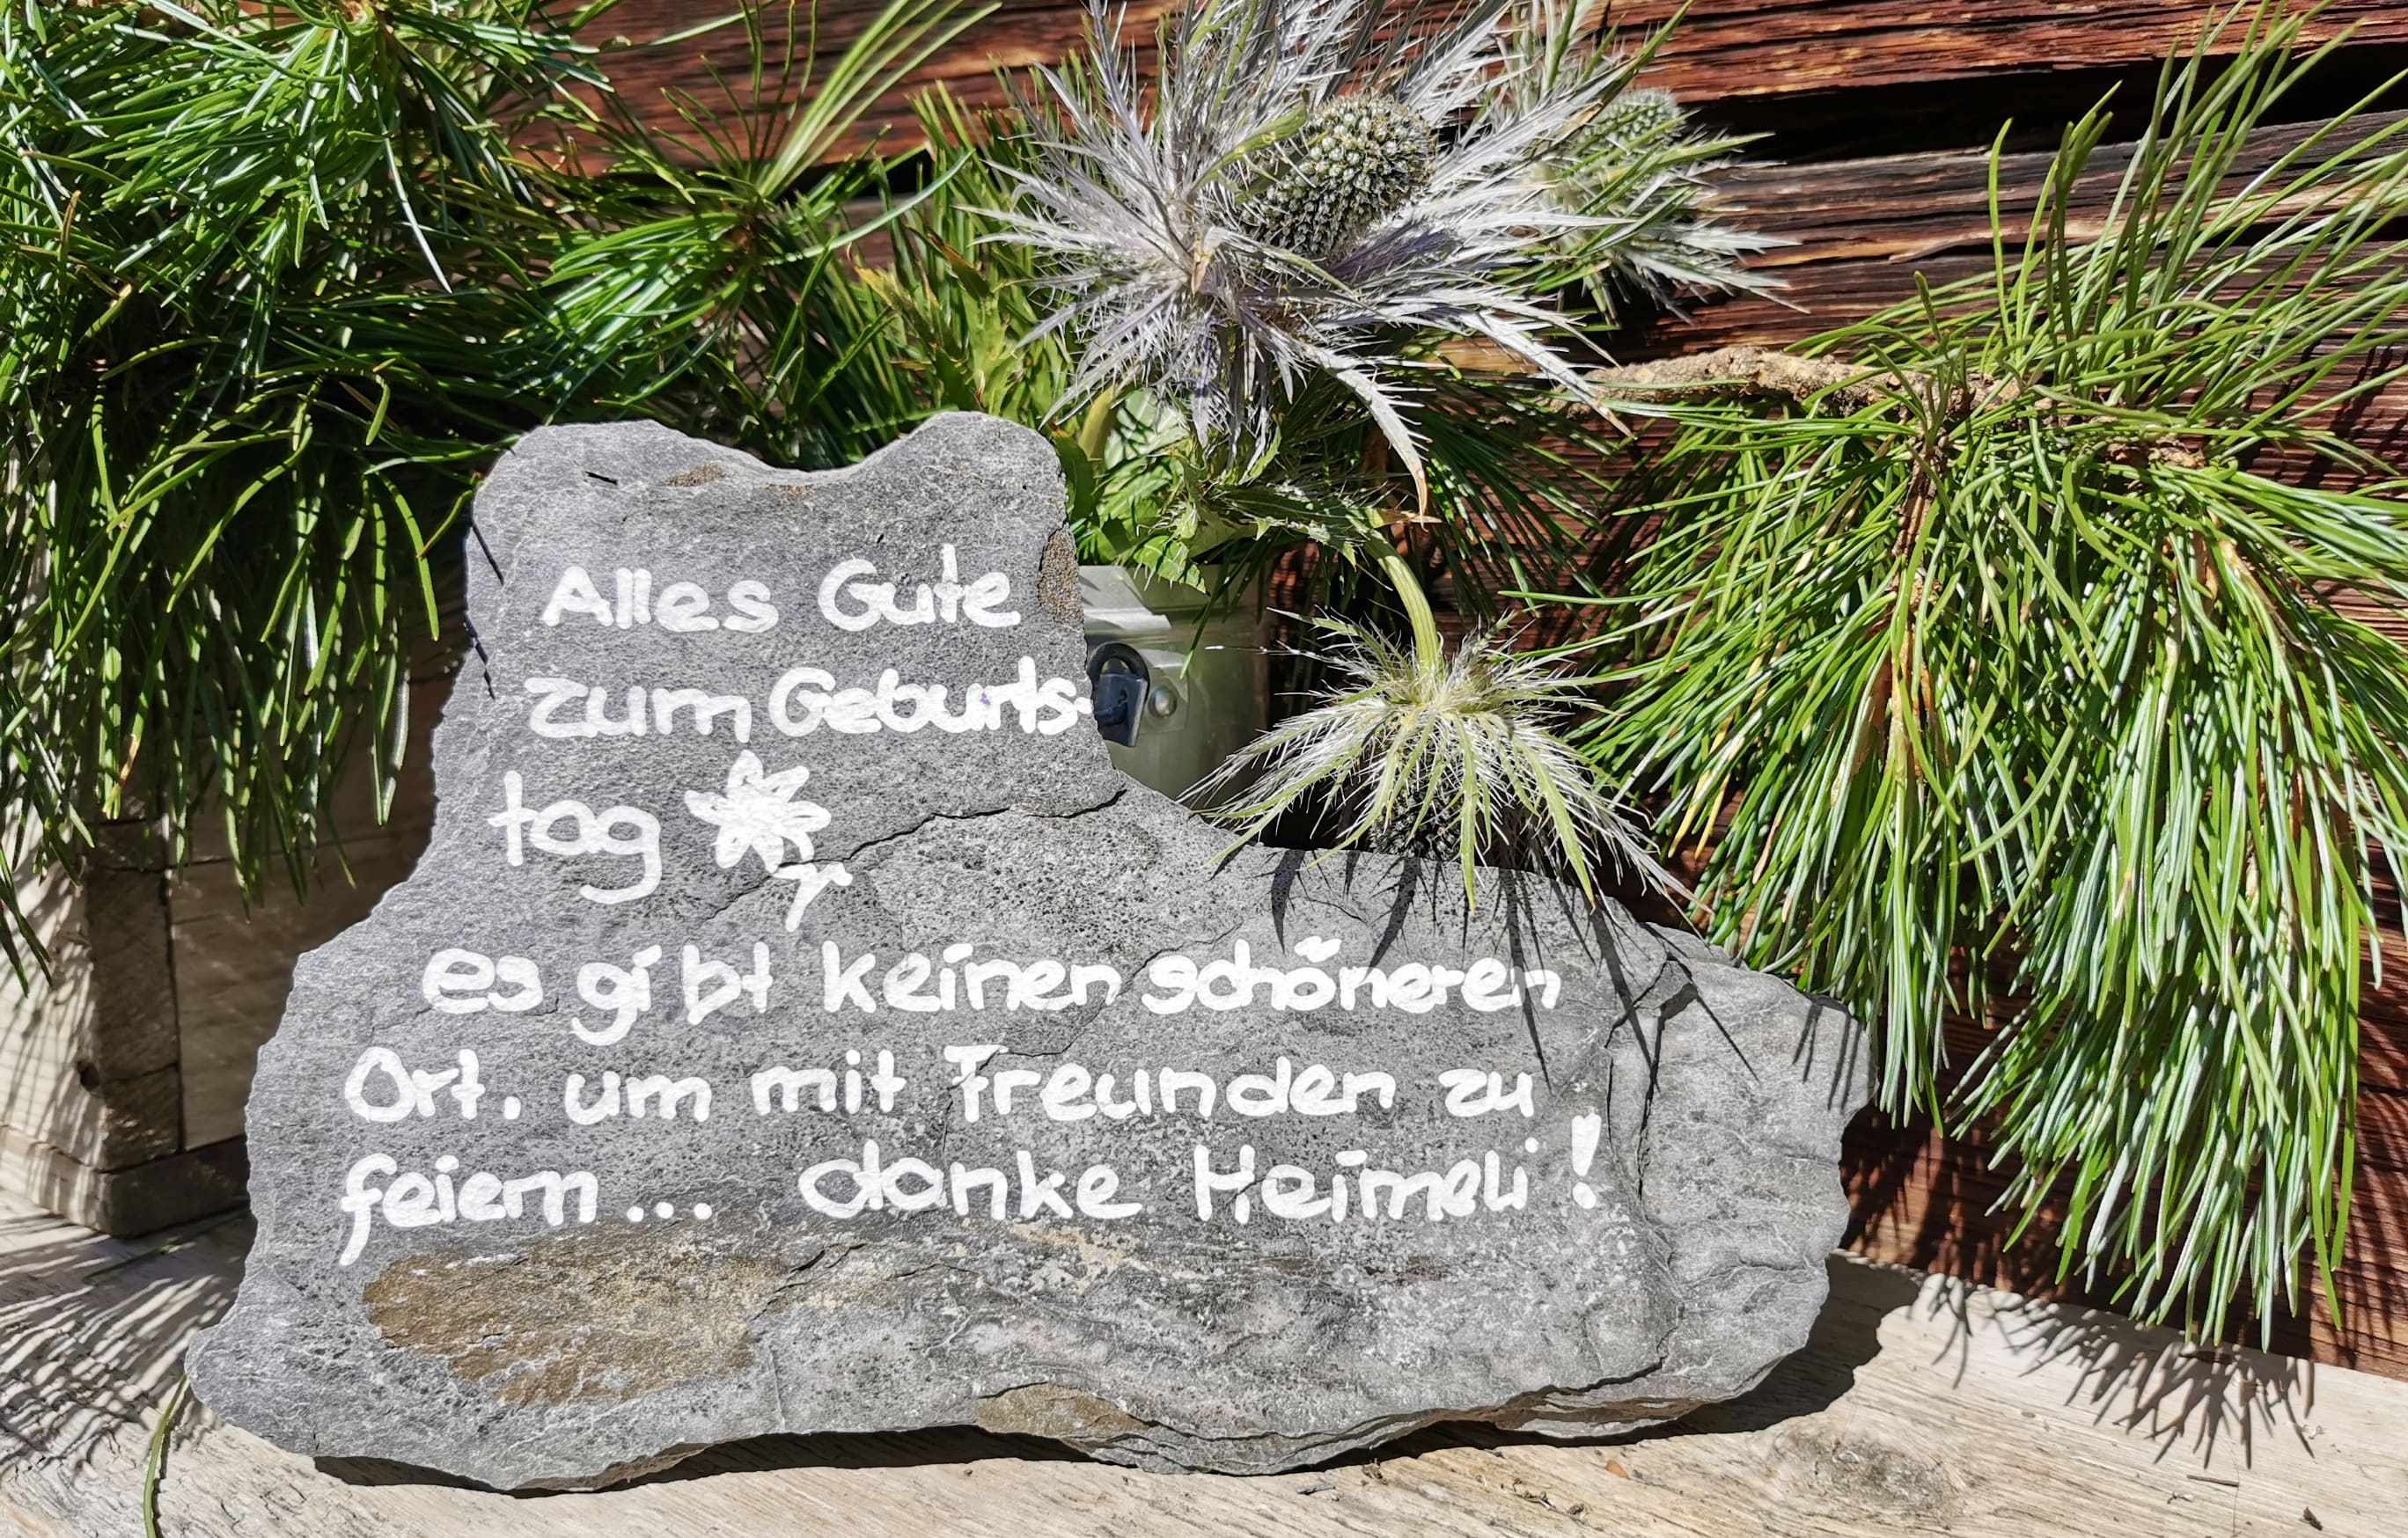 Alles Gute
zum Geburts-
tag
es gibt keinen schöneren
Ort, um mit Freunden zu
feiern... danke Heimeli!